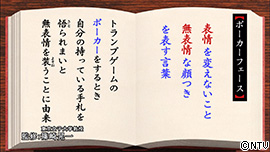 【ポーカーフェース】
表情を変えないこと
無表情な顔つき
を表す言葉
トランプゲームの
ポーカーをするとき
自分の持っている手札を
悟られまいと
無表情を装うことに由来
©NTV